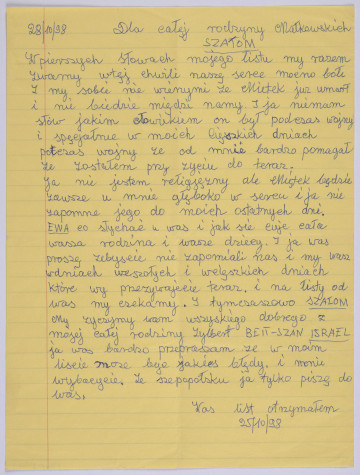 28/10/98 Dla całej rodzyny Małkowskich
SZALOM
W pierszych słowach mojego listu my razem
zwamy wtej chwili naszą serce mocno bołi
I my sobie nie winszymy ze Mietek już umarł
i nie będzie między namy I ja niemam
słów jakim człowiekem on był podczas wojny
i specjalnie w moich ciężkich dniach
podczas wojny ze od mnie bardzo pomagał
że zostałem przy życiu do teraz.
Ja nie jestem religijczny ale Mietek będzie
zawsze u mnie głęboko w sercu i ja nie
zapomne jego do moich ostatnych dni.
EWA co słychać u was i jak sie cuje cała
wasza rodzina i wasze dziecy. I ja was
proszę zebyście nie zapomniali nas i my was
wdniach wesołych i welyckich dniach
które wy przezywajcie teraz. i na listy od
was my czekamy. I tymczasowo SZALOM
My zyczymy wam wszyskiego dobrego z
mojej całej rodziny Zylbert BEIT-SZAN ISRAEL
ja was bardzo przepraszam ze w moim
liscie moze być jakies błędy. i mnie
wybaczcie. Ze szepopolsku ja tylko piszę do
was.
Was list otrymałem
25/10/98